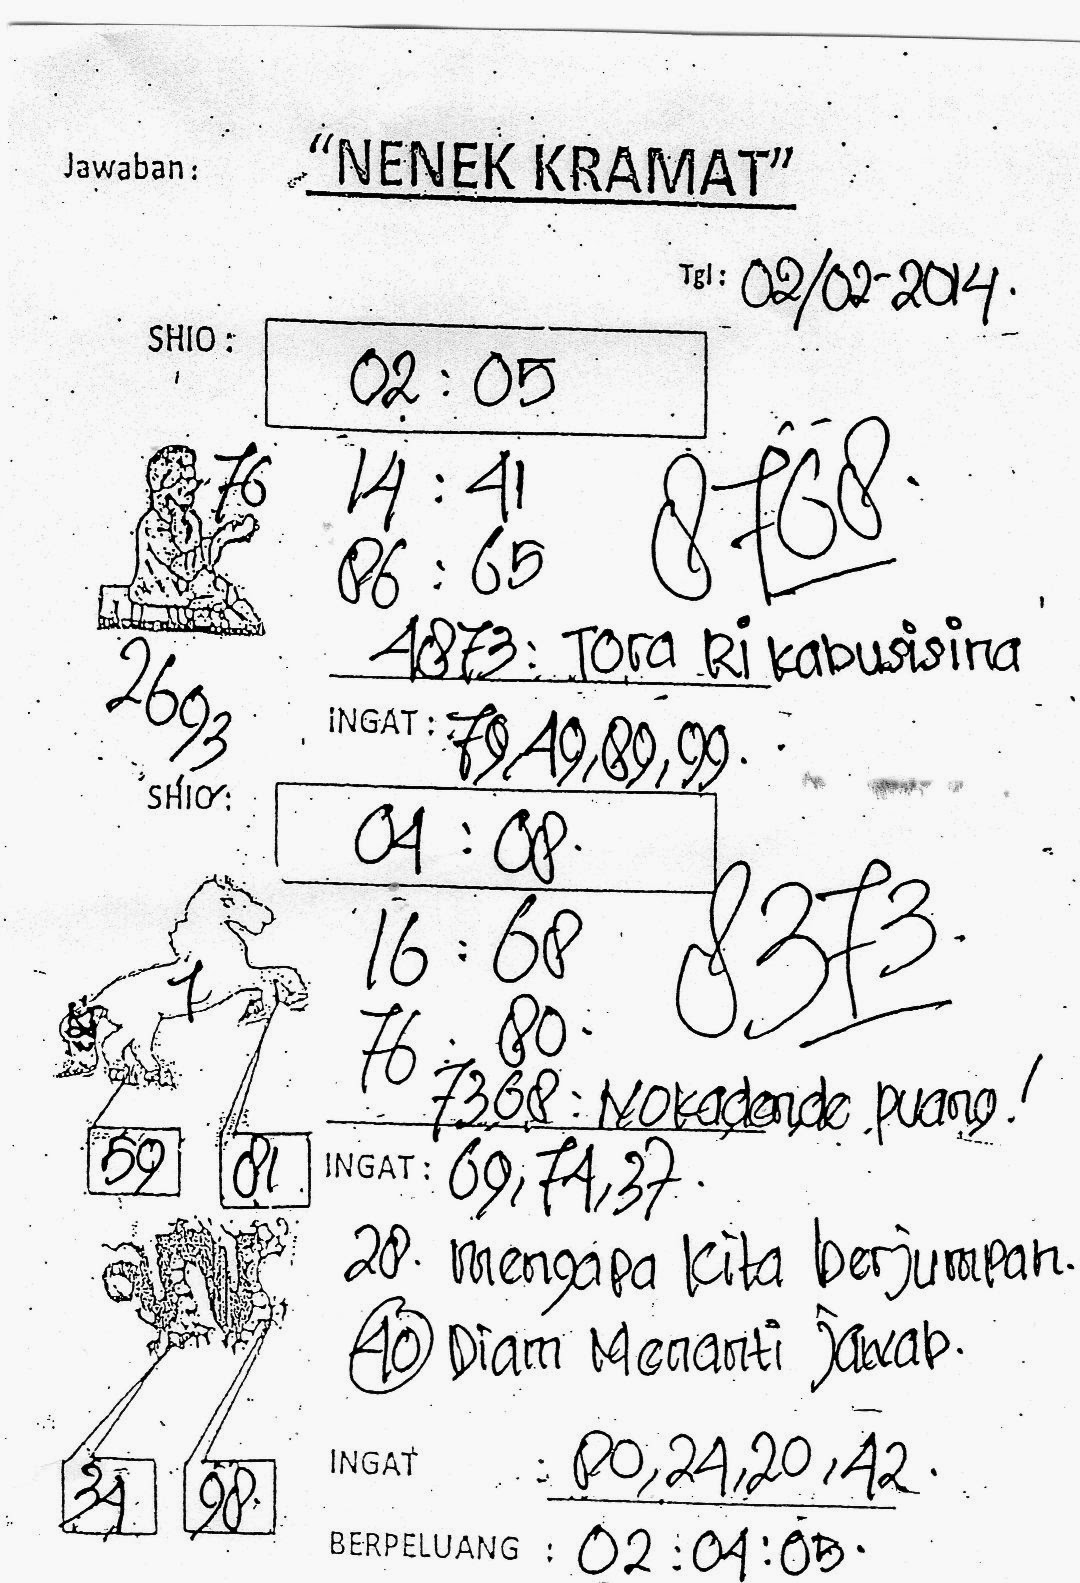 Jawaban: "NENEK KRAMAT"
Tgl: 02/02-2014.
SHIO: 02 : 05
76 14 : 41 8768.
86 : 65
4873: Tora Ri kabusisina
2693 INGAT: 79,49,89,99.
SHIO: 04 : 08.
16 : 68 8373.
1
76 . 80.
7368: Nokadende puang!
59 81 INGAT: 69,74,37.
28. mengapa kita berjumpah.
40 Diam Menanti jawab.
INGAT : 80,24,20,42.
34 98.
BERPELUANG : 02:04:05.